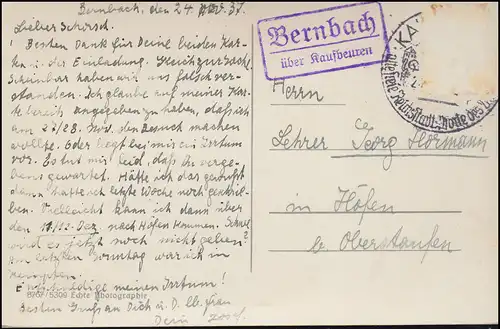 Bernbach, den 24. Nov. 37.
Lieber Schorsch!
Besten Dank für Deine beiden Kar-
ten u. der Einladung. Gleich zurück.
Scheinbar haben wir uns falsch ver-
standen. Ich glaube auf meiner Kar-
te bereits angegeben zu haben, daß ich
am 27/28. Nov. den Besuch machen
wollte. Oder liegt bei mir ein Irrtum
vor. Es tut mir leid, daß Du verge-
bens gewartet. Hätte ich das gewußt
dann hätte ich letzte Woche noch geschrie-
ben. Vielleicht kann ich dann über
den 11./12. Dez. nach Höfen kommen. Schnee
wird es jetzt noch nicht geben?
Am letzten Sonntag war ich in
Kempten.
Entschuldige meinen Irrtum!
Besten Gruß an Dich u. D. lb. Frau
Dein Josef.
5309 Echte Photographie
Bernbach
über Kaufbeuren
Herrn
Lehrer Georg Hörmann
in Höfen
b. Oberstaufen